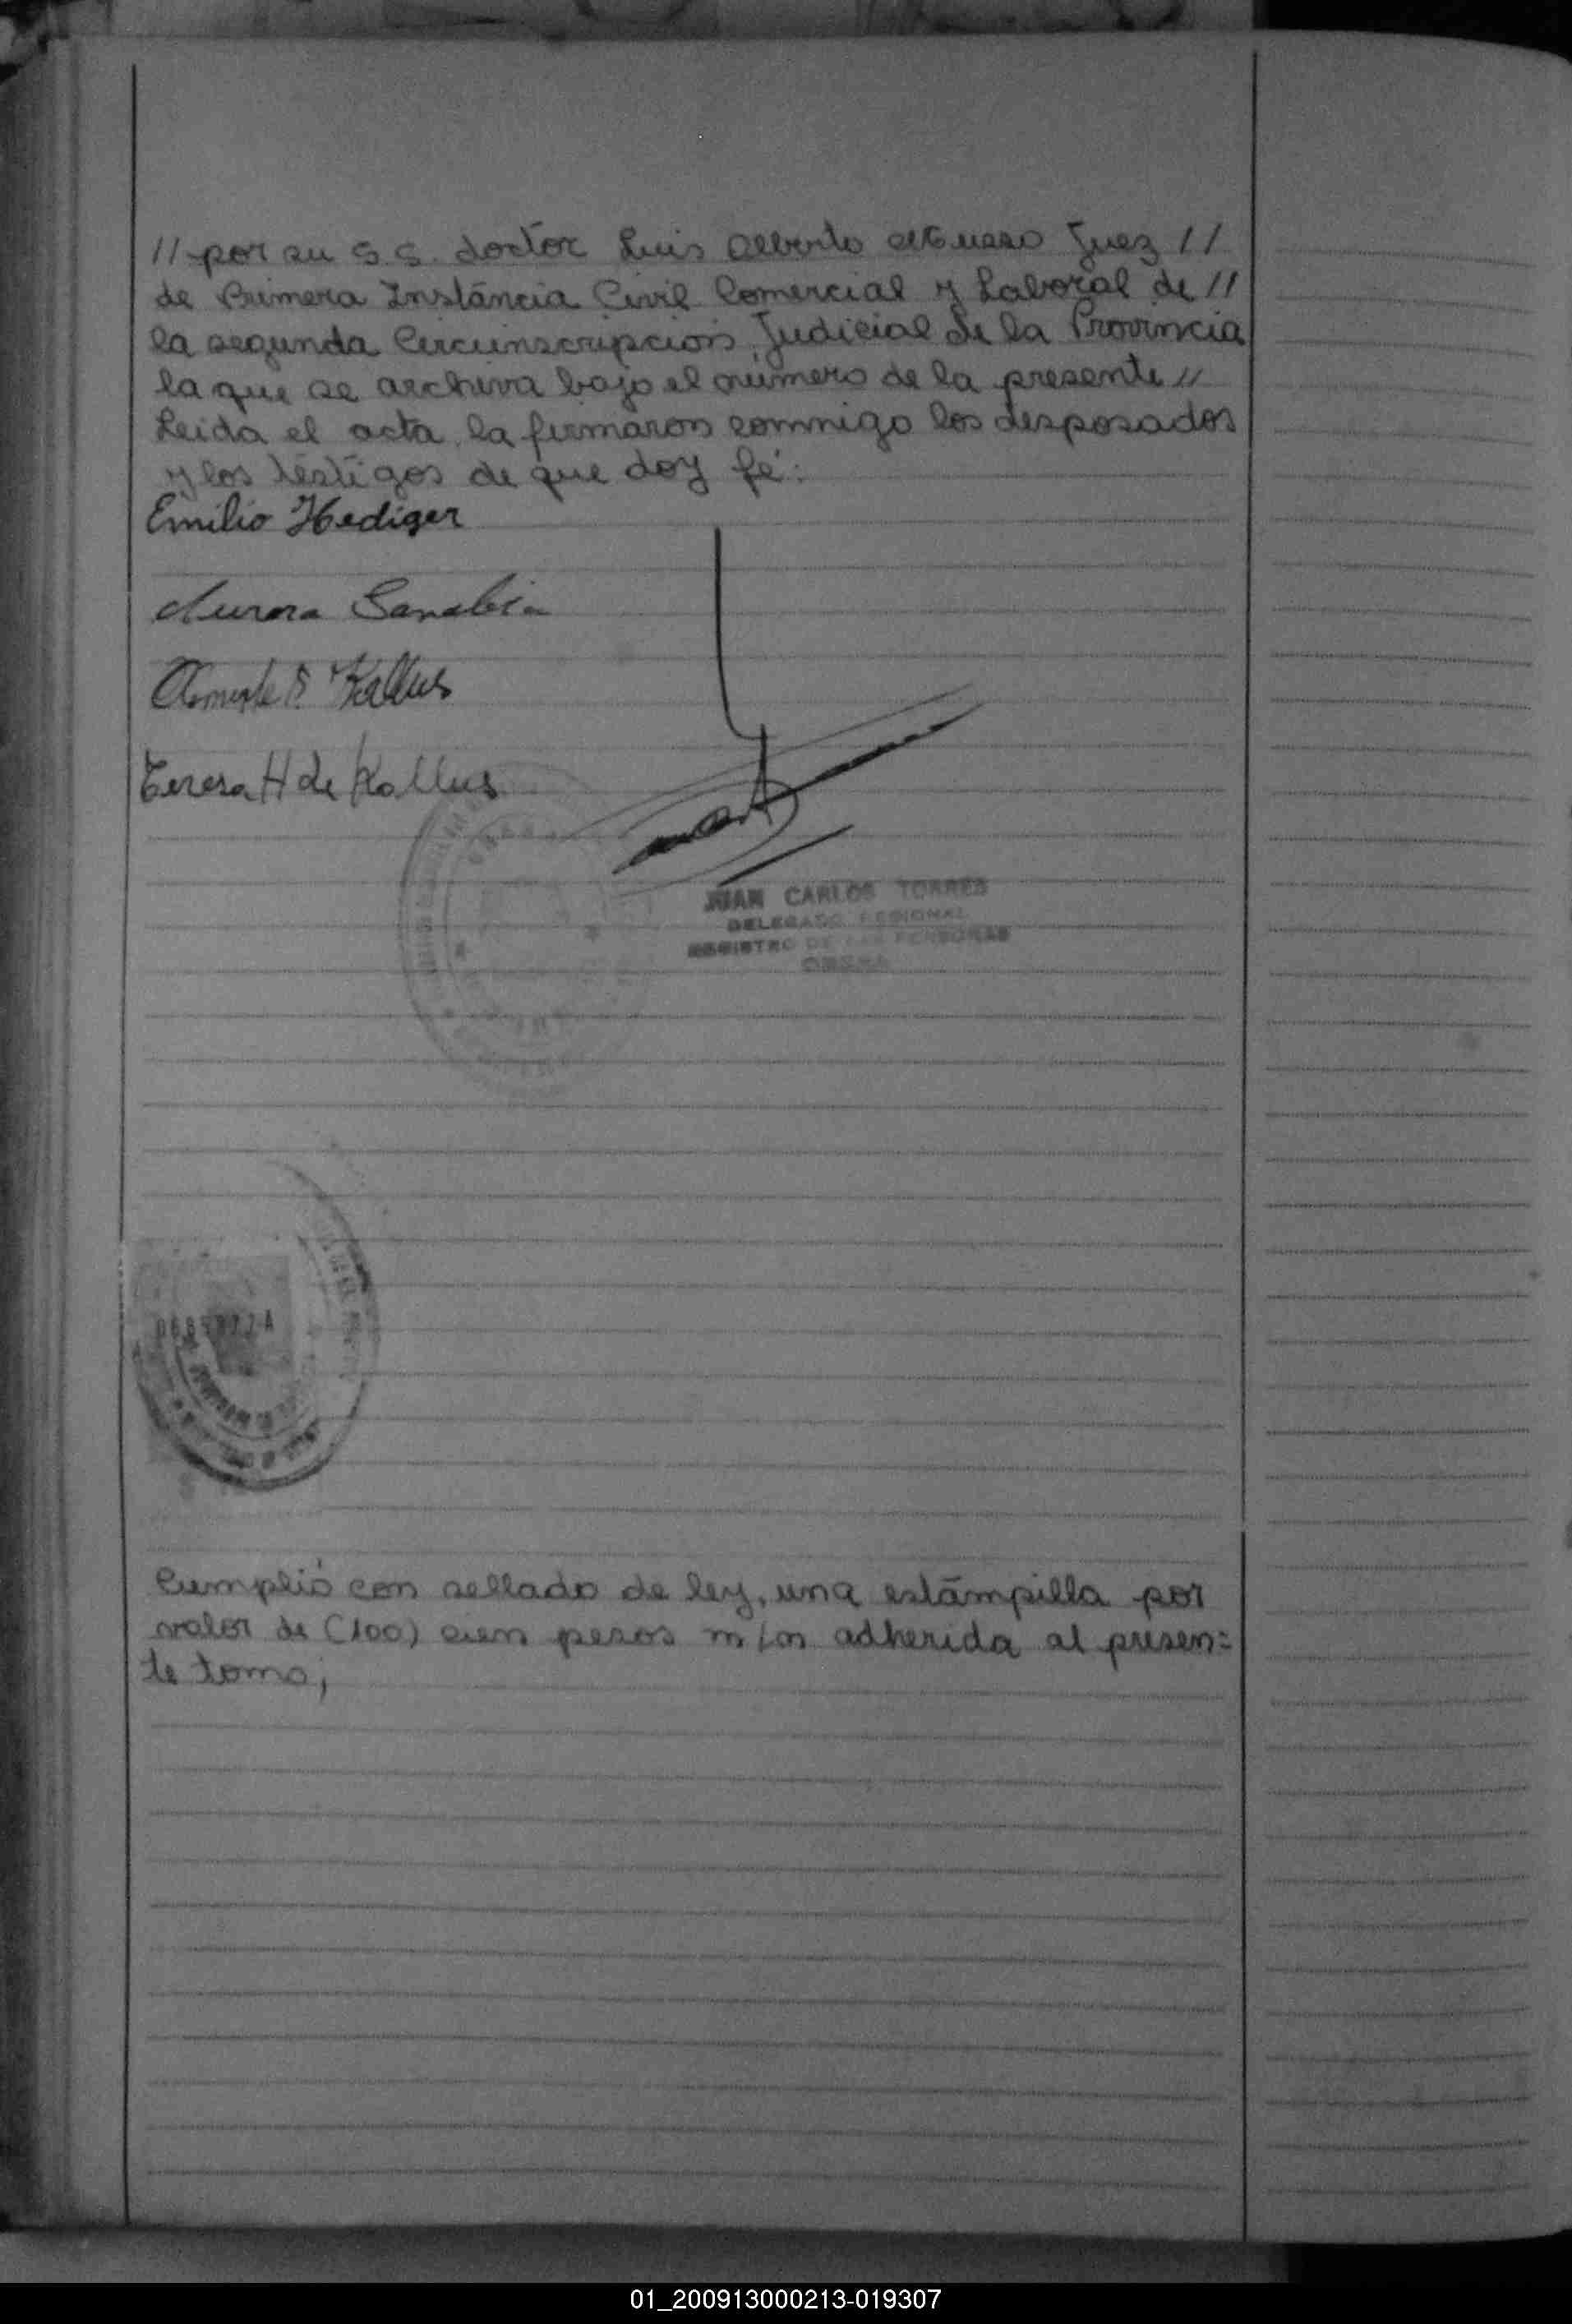 // por su S.S. doctor Luis Alberto Juez //
de Primera Instáncia Civil Comercial y Laboral de //
la segunda Circunscripción Judicial de la Provincia
la que se archiva bajo el número de la presente //
Leida el acta la firmaron conmigo los desposados
y los téstigos de que doy fé:
Emilio Hediger
Aurora Sanabria
Kallus
Teresa H de Kallus
JUAN CARLOS TORRES
DELEGADO REGIONAL
REGISTRO DE LAS PERSONAS
OBERA
Cumplió con sellado de ley, una estámpilla por
valor de (100) cien pesos m/n adherida al presen=
te tomo;
01_200913000213-019307